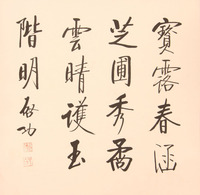 寶露春涵
芝圃秀喬
雲晴護玉
階明 啟功